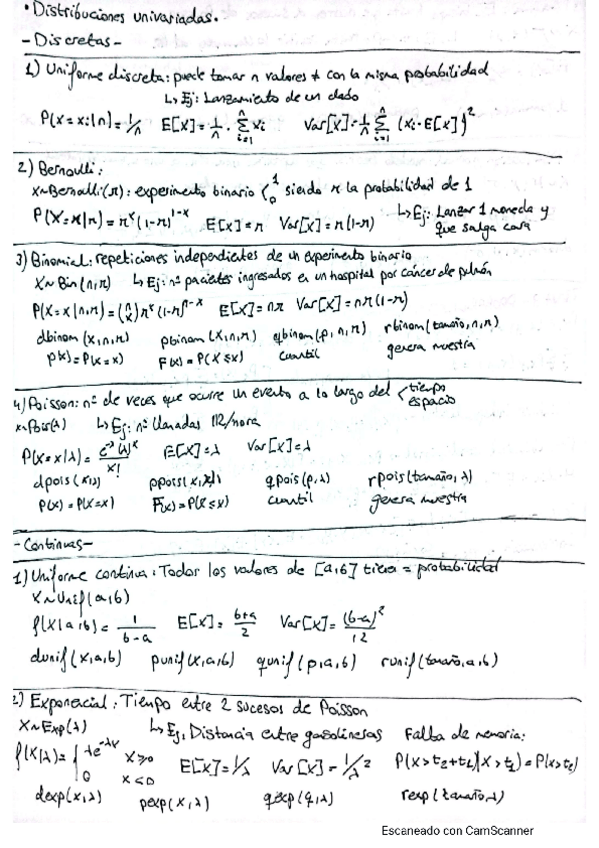 • Distribuciones univariadas.
- Discretas -
1) Uniforme discreta: puede tomar n valores ≠ con la misma probabilidad
↳ Ej: Lanzamiento de un dado
P(X=xi|n)=1/n E[X]=1/n · Σ xi Var[X]=1/n Σ (xi-E[X])²
2) Bernoulli:
X~Bernoulli(π): experimento binario < 1 0 siendo π la probabilidad de 1
P(X=x|π)=π^x(1-π)^1-x E[X]=π Var[X]=π(1-π) ↳ Ej: Lanzar 1 moneda y
que salga cara
3) Binomial: repeticiones independientes de un experimento binario
X~Bin(n,π) ↳ Ej: nº pacientes ingresados en un hospital por cáncer de pulmón
P(X=x|n,π)=(n x)π^x(1-π)^n-x E[X]=nπ Var[X]=nπ(1-π)
dbinom(x,n,π) pbinom(x,n,π) qbinom(p,n,π) rbinom(tamaño,n,π)
p(x)=P(X=x) F(x)=P(X≤x) cuantil genera muestra
4) Poisson: nº de veces que ocurre un evento a lo largo del < tiempo espacio
X~Pois(λ) ↳ Ej: nº llamadas 112/hora
P(X=x|λ)= e^-λ(λ)^x / x! E[X]=λ Var[X]=λ
dpois(x,λ) ppois(x,λ) qpois(p,λ) rpois(tamaño,λ)
p(x)=P(X=x) F(x)=P(X≤x) cuantil genera muestra
- Continuas -
1) Uniforme continua: Todos los valores de [a,b] tienen = probabilidad
X~Unif(a,b)
f(X|a,b)= 1 / b-a E[X]= b+a / 2 Var[X]= (b-a)² / 12
dunif(x,a,b) punif(x,a,b) qunif(p,a,b) runif(tamaño,a,b)
2) Exponencial: Tiempo entre 2 sucesos de Poisson
X~Exp(λ) ↳ Ej, Distancia entre gasolineras Falta de memoria:
f(X|λ)= { λe^-λx x≥0 0 x<0 E[X]=1/λ Var[X]=1/λ² P(X>t2+t1|X>t1)=P(X>t2)
dexp(x,λ) pexp(x,λ) qexp(q,λ) rexp(tamaño,λ)
Escaneado con CamScanner